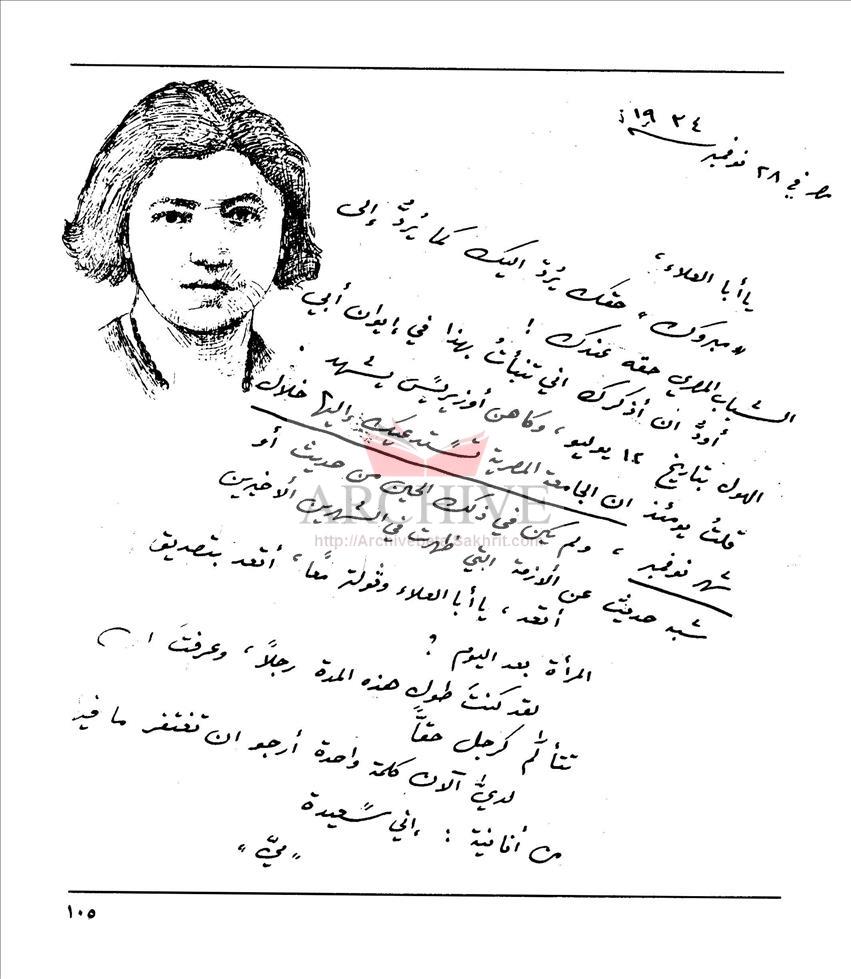 ١٩٣٤
مصر في ٢٨ نوفمبر
يا أبا العلاء،
"مبروك" حقك يُردّ اليك كما يُردُّ إلى
الشباب المصري حقه عندك !
أودُّ ان أذكرك اني تنبأتُ بهذا في إيوان أبي
الهول بتاريخ ١٢ يوليو، وكاهن أوزيريس يشهد.
قلتُ يومئذ ان الجامعة المصرية تستدعيك إليها خلال
شهر نوفمبر، ولم يكن في ذلك الحين من حديث أو
شبه حديث عن الأزمة التي ظهرت في الشهرين الأخيرين
أتعد، يا أبا العلاء وڤولتر معًا، أتعد بتصديق
المرأة بعد اليوم ؟
لقد كنتَ طول هذه المدة رجلاً، وعرفتَ ان
تتألم كرجل حقًّا
لديَّ الآن كلمة واحدة أرجو ان تغتفر ما فيها
من أنانية : إني سعيدة
"ميّ"
ARCHIVE
http://Archivebeta.Sakhrit.com
١٠٥